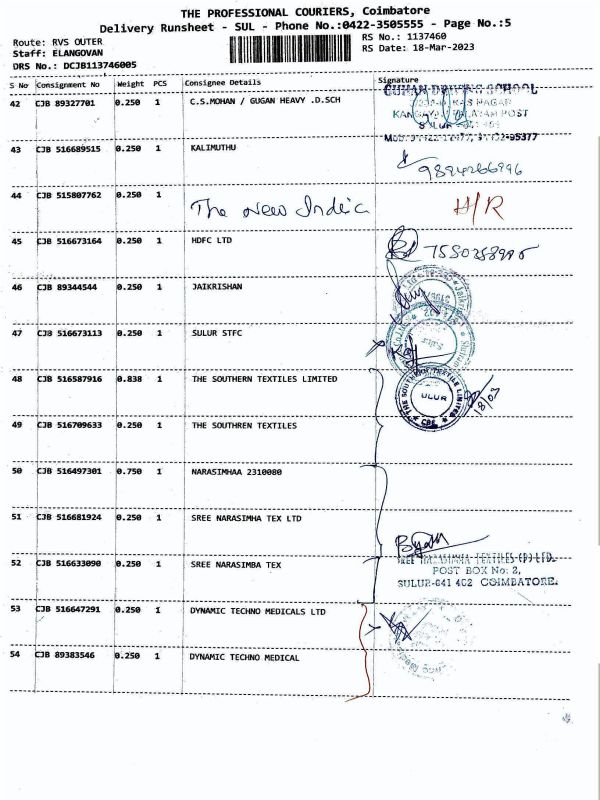 THE PROFESSIONAL COURIERS, Coimbatore
Delivery Runsheet - SUL - Phone No.:0422-3505555 - Page No.:5
Route: RVS OUTER
RS No.: 1137460
Staff: ELANGOVAN
RS Date: 18-Mar-2023
DRS No.: DCJB113746005
S No Consignment No Weight PCS Consignee Details Signature
42 CJB 89327701 0.250 1 C.S.MOHAN / GUGAN HEAVY .D.SCH
POST
SULUR
43 CJB 516689515 0.250 1 KALIMUTHU
44 CJB 515807762 0.250 1 The New India H/R
45 CJB 516673164 0.250 1 HDFC LTD
46 CJB 89344544 0.250 1 JAIKRISHAN
47 CJB 516673113 0.250 1 SULUR STFC
48 CJB 516587916 0.838 1 THE SOUTHERN TEXTILES LIMITED
THE SOUTHERN TEXTILE LIMITED
ULUR
CBE
18/03
49 CJB 516709633 0.250 1 THE SOUTHREN TEXTILES
50 CJB 516497301 0.750 1 NARASIMHAA 2310080
51 CJB 516681924 0.250 1 SREE NARASIMHA TEX LTD
52 CJB 516633090 0.250 1 SREE NARASIMBA TEX
REE NARASIMHA TEXTILES (P) LTD.
POST BOX No: 2,
SULUR-641 402 COIMBATORE.
53 CJB 516647291 0.250 1 DYNAMIC TECHNO MEDICALS LTD
54 CJB 89383546 0.250 1 DYNAMIC TECHNO MEDICAL